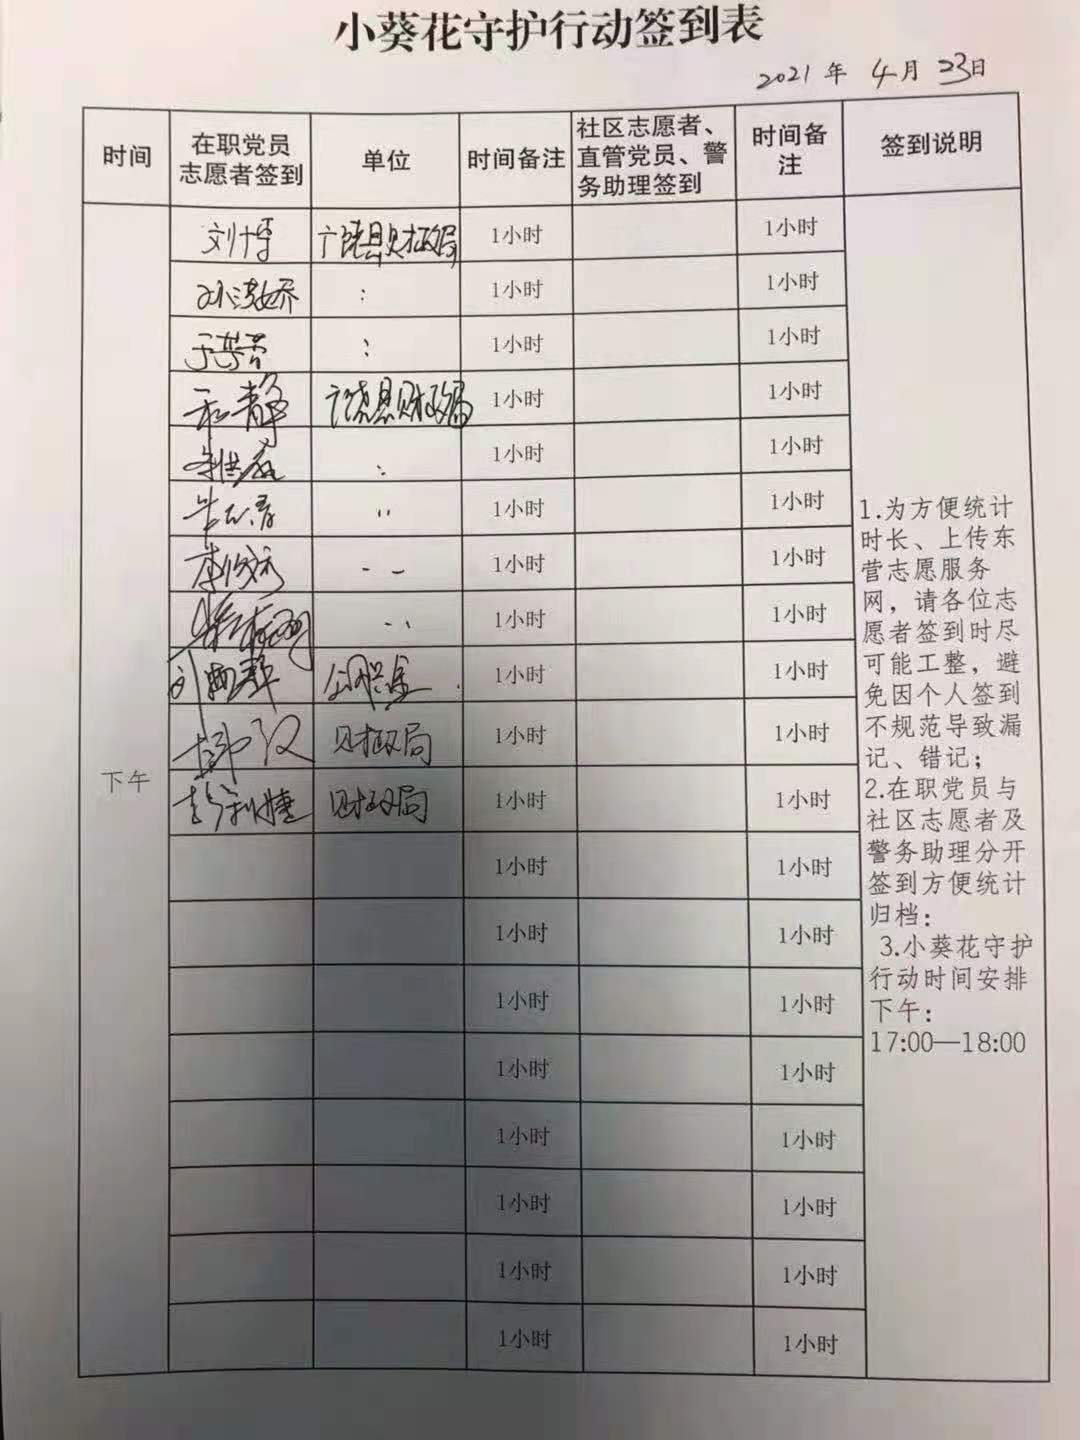 小葵花守护行动签到表
2021 年 4 月 23 日
时间
在职党员
志愿者签到
单位
时间备注
社区志愿者、
直管党员、警
务助理签到
时间备
注
签到说明
下午
刘博 广饶县财政局 1小时 1小时
: 1小时 1小时
: 1小时 1小时
广饶县财政局 1小时 1小时
: 1小时 1小时
" 1小时 1小时
1小时 1小时
1小时 1小时
1小时 1小时
财政局 1小时 1小时
彭利婕 财政局 1小时 1小时
1小时 1小时
1小时 1小时
1小时 1小时
1小时 1小时
1小时 1小时
1小时 1小时
1小时 1小时
1小时 1小时
1.为方便统计
时长、上传东
营志愿服务
网，请各位志
愿者签到时尽
可能工整，避
免因个人签到
不规范导致漏
记、错记；
2.在职党员与
社区志愿者及
警务助理分开
签到方便统计
归档：
3.小葵花守护
行动时间安排
下午：
17:00—18:00